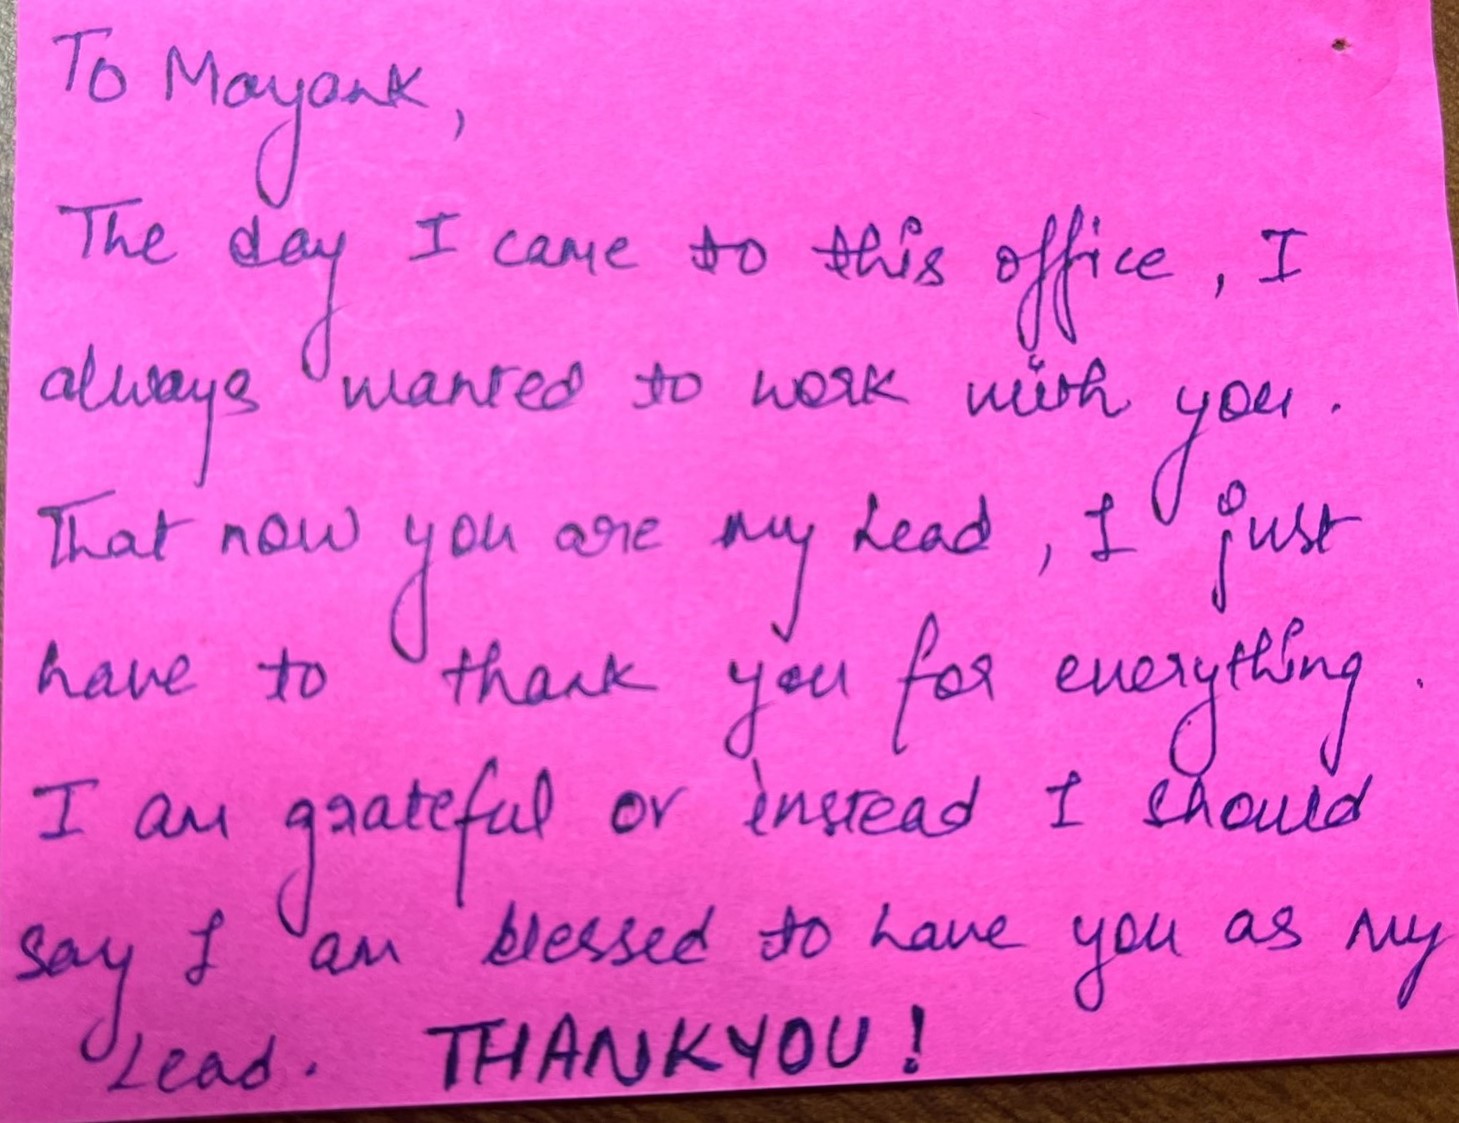 To Mayank,
The day I came to this office, I
always wanted to work with you.
That now you are my Lead, I just
have to thank you for everything.
I am grateful or instead I should
say I am blessed to have you as my
Lead. THANKYOU!